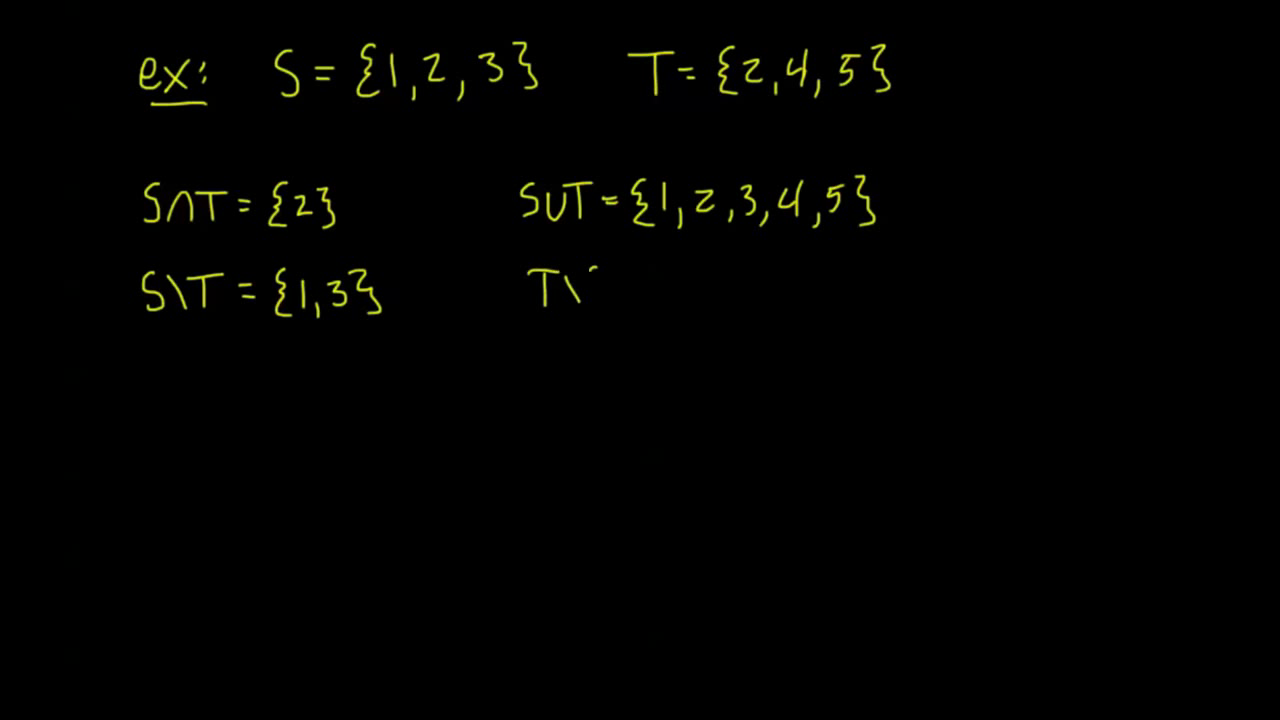 ex: S = {1, 2, 3} T = {2, 4, 5}
S∩T = {2} S∪T = {1, 2, 3, 4, 5}
S\T = {1, 3} T\